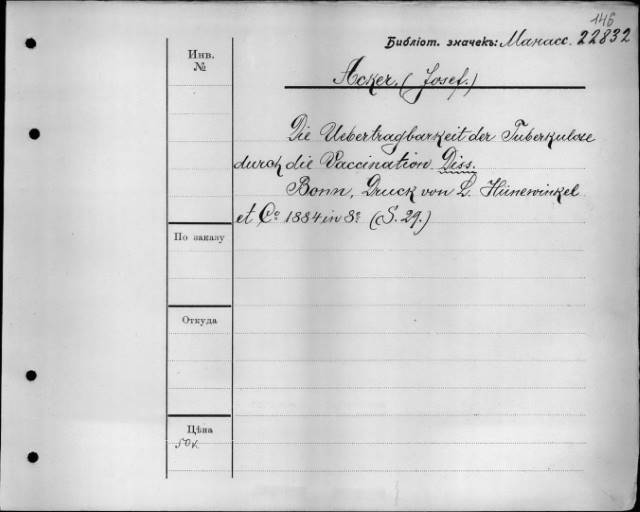 146
Библіот. значекъ: Манасс. 22832
Инв. №
Acker, (Josef.)
Die Uebertragbarkeit der Tuberkulose
durch die Vaccination Diss.
Bonn, Druck von L. Hünewinkel
et Co 1884 in 8º (S. 29.)
По заказу
Откуда
Цѣна
50 к.